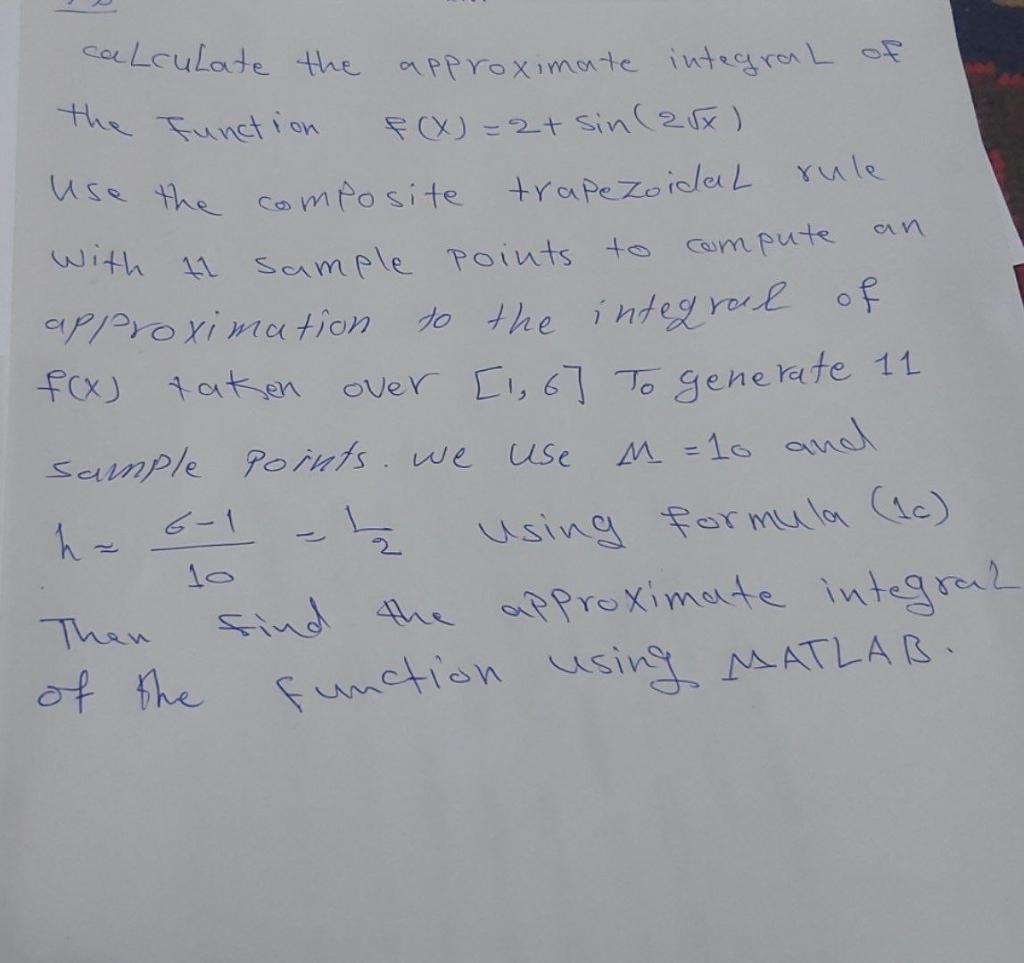 calculate the approximate integral of
the Function f(x) = 2 + sin(2√x)
Use the composite trapezoidal rule
with 11 sample points to compute an
approximation to the integral of
f(x) taken over [1, 6] To generate 11
sample points. we use M = 10 and
h = (6-1)/10 = 1/2 using formula (1c)
Then find the approximate integral
of the function using MATLAB.